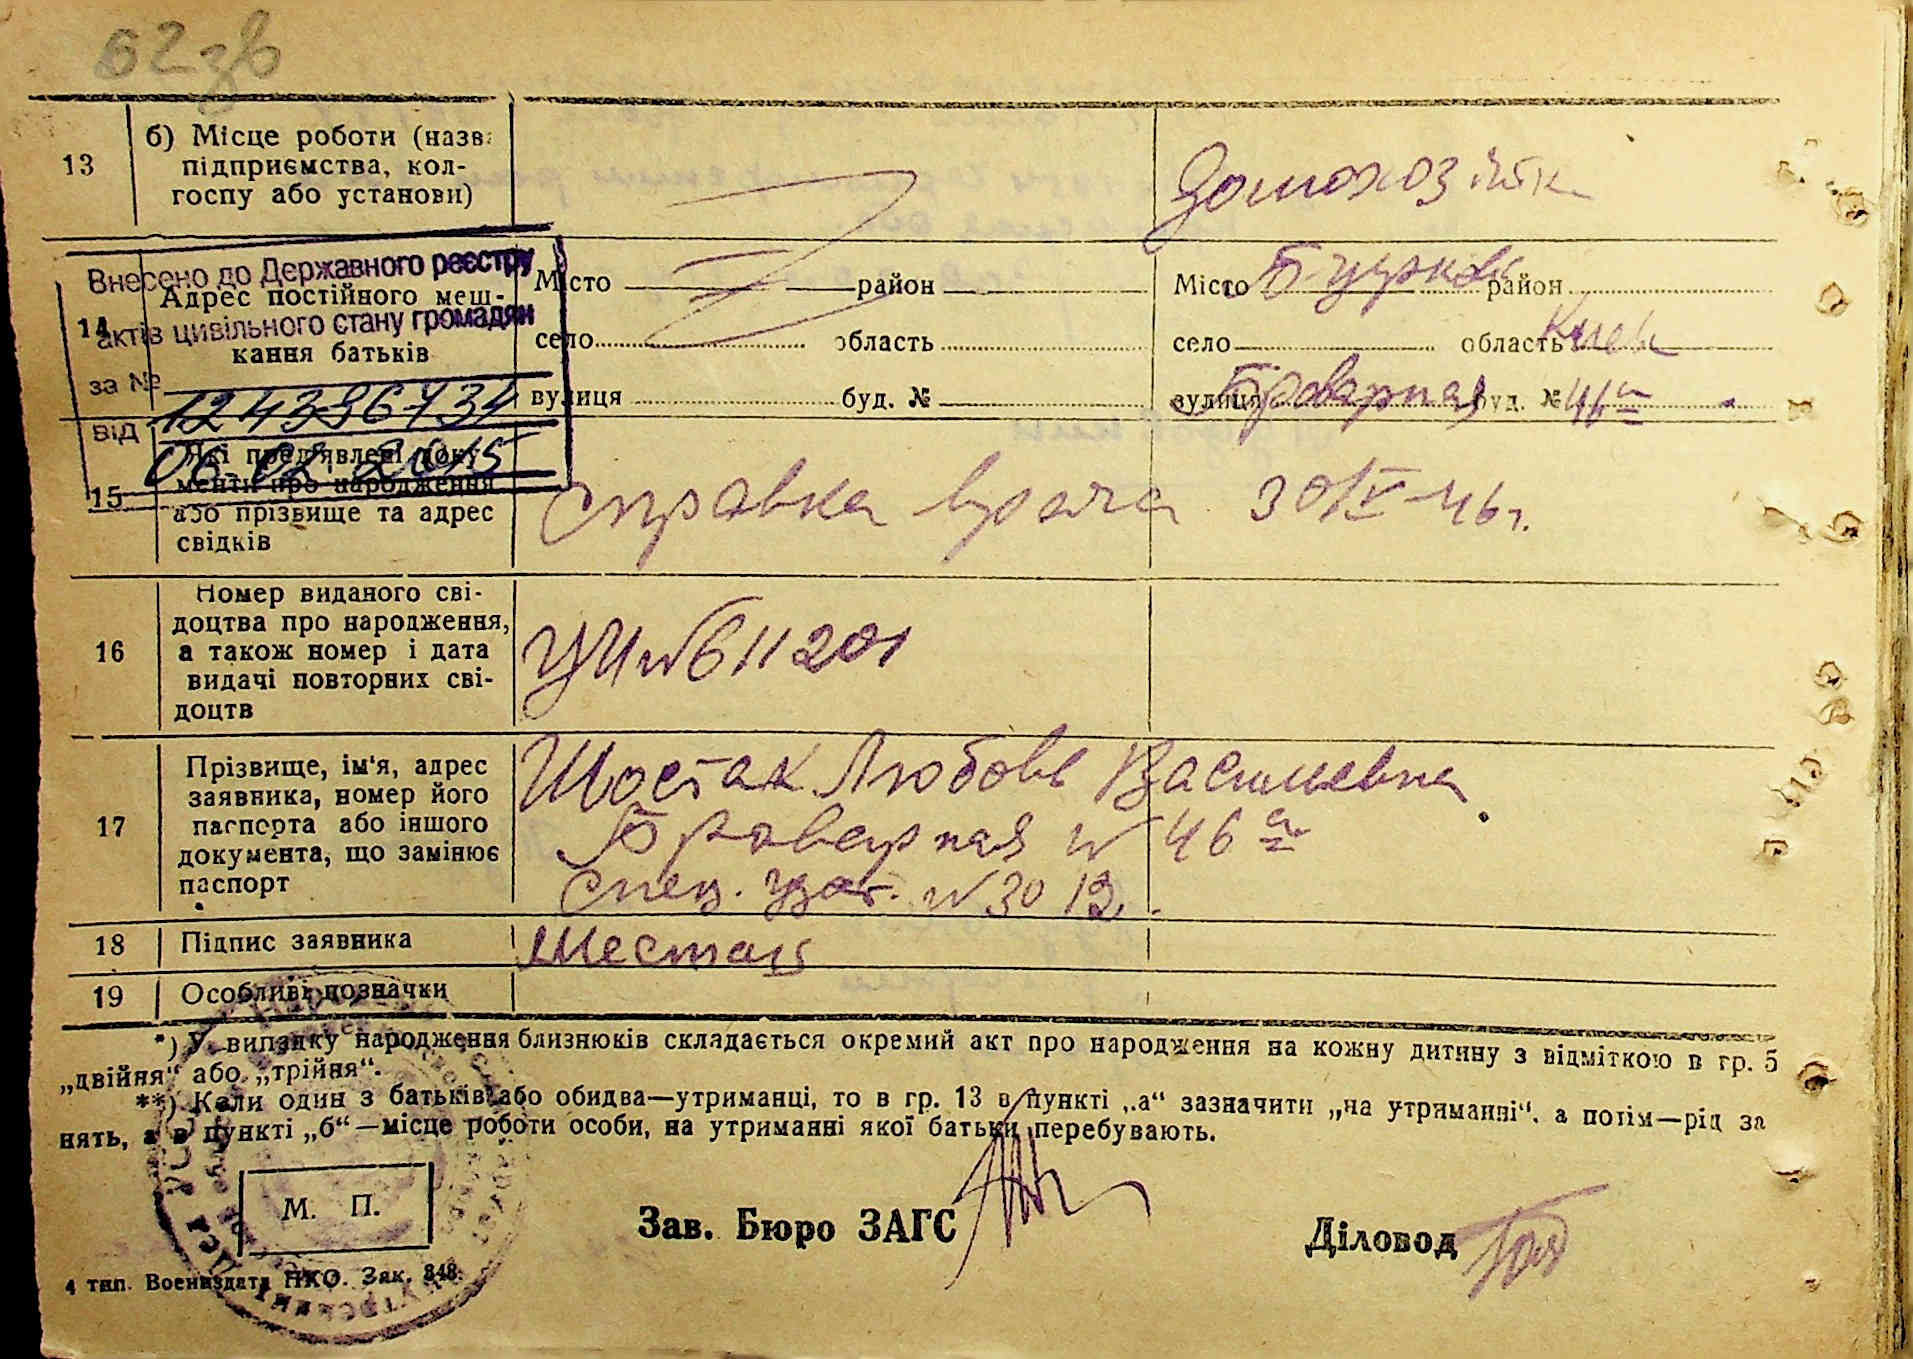 62зв
13
б) Місце роботи (назва
підприємства, кол-
госпу або установи)
Домохозяйка
Внесено до Державного реєстру
актів цивільного стану громадян
за №
124396734
від
06.02.2015
14
Адрес постійного меш-
кання батьків
Місто район
село область
вулиця буд. №
Місто Б-Церковь район
село область Киев
вулиця Броварная буд. № 46а
15
Які пред'явлені доку-
менти про народження
або прізвище та адрес
свідків
Справка врача 30/IV-46г.
16
Номер виданого сві-
доцтва про народження,
а також номер і дата
видачі повторних сві-
доцтв
УЦ №611201
17
Прізвище, ім'я, адрес
заявника, номер його
паспорта або іншого
документа, що замінює
паспорт
Шостак Любовь Васильевна
Броварная № 46а
Спец. удос. №3012.
18
Підпис заявника
19
Особливі позначки
*) У випадку народження близнюків складається окремий акт про народження на кожну дитину з відміткою в гр. 5
„двійня“ або „трійня“.
**) Коли один з батьків або обидва—утриманці, то в гр. 13 в пункті „а“ зазначити „на утриманні“, а потім—рід за
нять, а в пункті „б“—місце роботи особи, на утриманні якої батьки перебувають.
М. П.
Зав. Бюро ЗАГС
Діловод
4 тип. Воениздата НКО. Зак. 848.